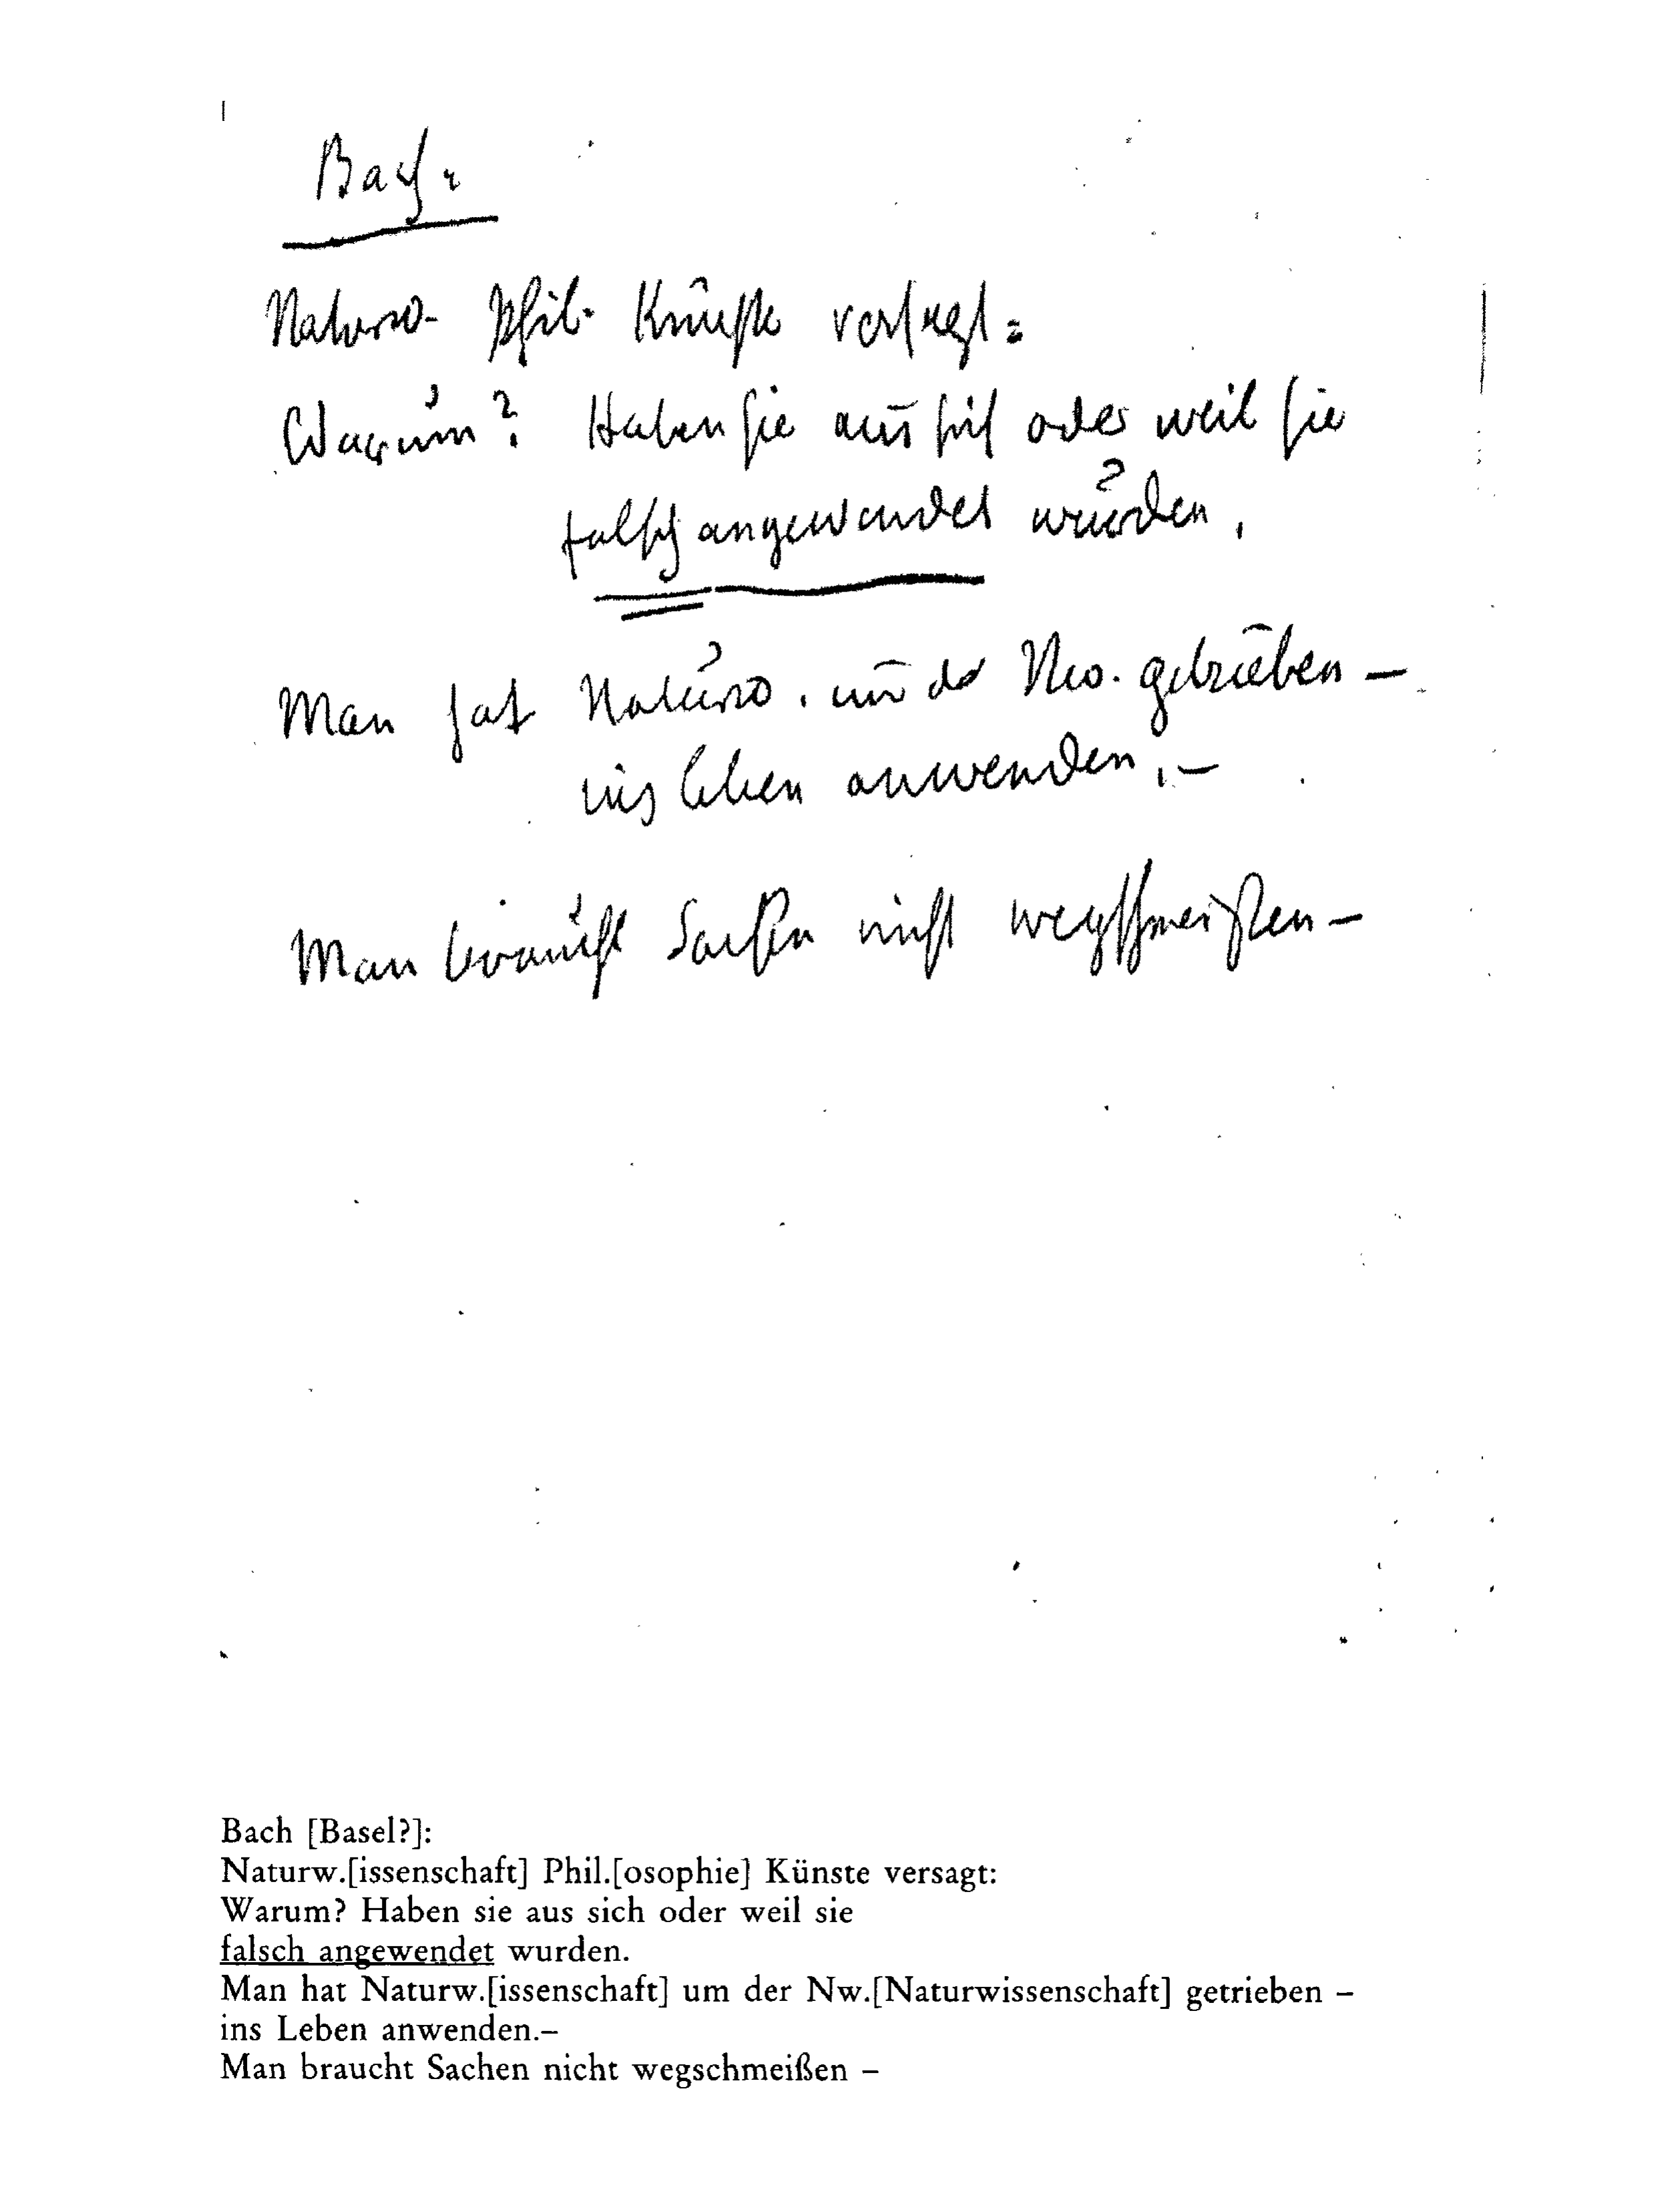 Bach:
Naturw. Phil. Künste versagt:
Warum? Haben sie aus sich oder weil sie
falsch angewendet wurden.
Man hat Naturw. um der Nw. getrieben –
ins Leben anwenden.–
Man braucht Sachen nicht wegschmeißen –
Bach [Basel?]:
Naturw.[issenschaft] Phil.[osophie] Künste versagt:
Warum? Haben sie aus sich oder weil sie
falsch angewendet wurden.
Man hat Naturw.[issenschaft] um der Nw.[Naturwissenschaft] getrieben –
ins Leben anwenden.–
Man braucht Sachen nicht wegschmeißen –